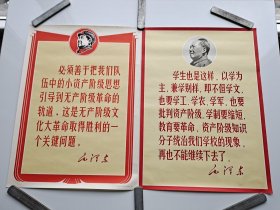 必须善于把我们队
伍中的小资产阶级思想
引导到无产阶级革命的
轨道，这是无产阶级文
化大革命取得胜利的一
个关键问题。
毛泽东
学生也是这样，以学为
主，兼学别样，即不但学文，
也要学工、学农、学军，也要
批判资产阶级。学制要缩短，
教育要革命，资产阶级知识
分子统治我们学校的现象，
再也不能继续下去了。
毛泽东